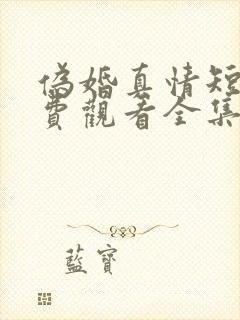 偽婚真情短
費觀看全集
藍寶